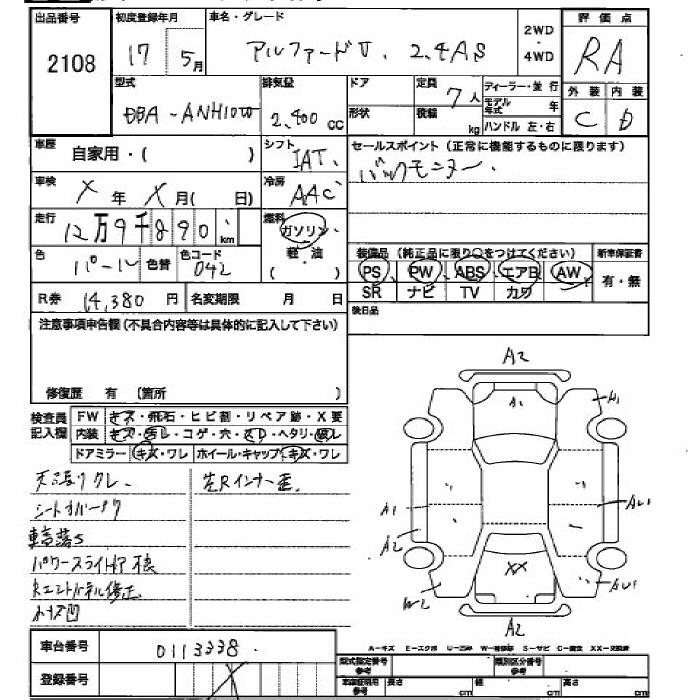 出品番号
2108
初度登録年月
17 5月
車名・グレード
アルファードV. 2.4AS
2WD
・
4WD
評価点
RA
型式
DBA-ANH10W
排気量
2,400 cc
ドア
形状
定員
7人
積載
kg
ディーラー・並行
モデル年式 年
ハンドル 左・右
外装 内装
C D
車歴
自家用・( )
シフト
IAT.
セールスポイント(正常に機能するものに限ります)
バックモニター.
車検
X年 X月( 日)
冷房
AAC
走行
12万9千890 km
燃料
ガソリン
軽・油
( )
色
パール
色替
色コード
042
装備品(純正品に限り○をつけてください)
新車保証書
PS PW ABS エアB AW
SR ナビ TV カワ
有・無
R券 14,380円
名変期限 月 日
後日品
注意事項申告欄(不具合内容等は具体的に記入して下さい)
修復歴 有 〔箇所 〕
検査員記入欄
FW キズ・飛石・ヒビ割・リペア跡・X要
内装 キズ・汚レ・コゲ・穴・スレ・ヘタリ・破レ
ドアミラー キズ・ワレ ホイール・キャップ キズ・ワレ
天張リタレ.
左Rインナー歪.
シートカバーアク
パワースライドドア不良
車台番号
0113338.
登録番号
A2
A2
A1
A1
A2
W2
XX
A2
A-キズ E-エクボ U-凹み W-補修跡 S-サビ C-腐食 XX-交換済
型式指定番号
参考
類別区分番号
参考
車庫証明用
参考
長さ cm
幅 cm
高さ cm